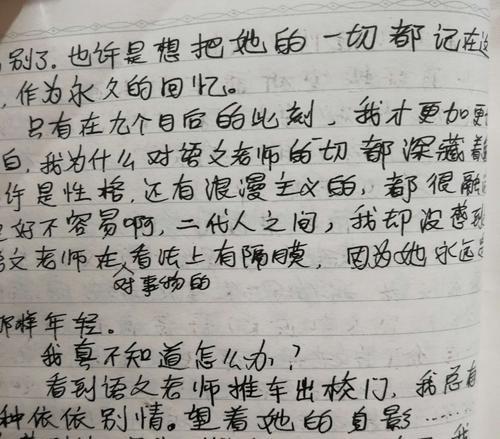 别了.也许是想把她的一切都记在这
,作为永久的回忆。
只有在九个月后的此刻,我才更加更
白,我为什么对语文老师的一切都深藏着
许是性格,还有浪漫主义的,都很融
好不容易啊,二代人之间,我却没想到
文老师在对事物的看法上有隔膜,因为她永远
那样年轻。
我真不知道怎么办?
看到语文老师推车出校门,我总有
种依依别情。望着她的身影……
我